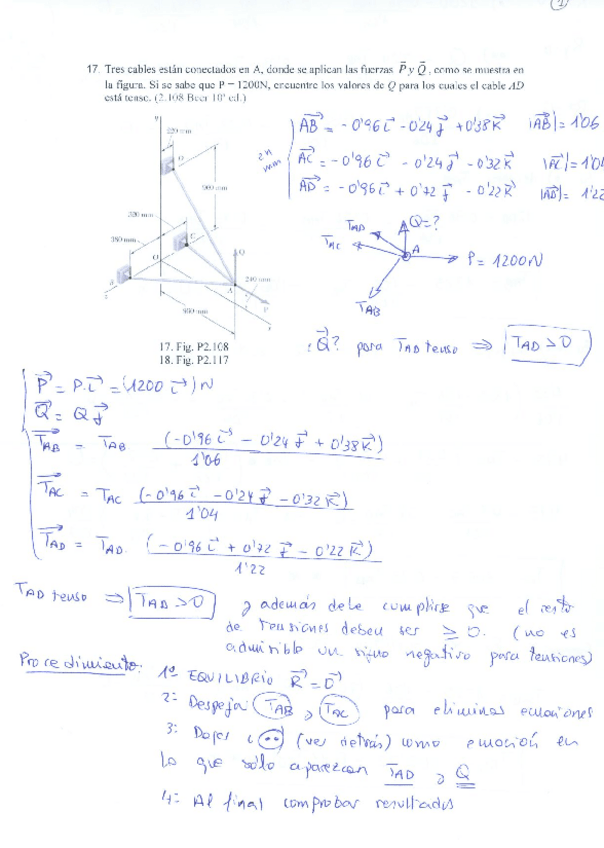 1
17. Tres cables están conectados en A, donde se aplican las fuerzas P y Q, como se muestra en
la figura. Si se sabe que P = 1200N, encuentre los valores de Q para los cuales el cable AD
está tenso. (2.108 Beer 10ª ed.)
AB = -0'96 i - 0'24 j + 0'38 k |AB| = 1'06
AC = -0'96 i - 0'24 j - 0'32 k |AC| = 1'04
AD = -0'96 i + 0'72 j - 0'22 k |AD| = 1'22
220 mm
960 mm
320 mm
380 mm
240 mm
960 mm
y
D
C
B
O
Q
A
P
TAD
TAC
Q=?
A
P = 1200N
TAB
17. Fig. P2.108
18. Fig. P2.117
¿Q? para TAD tenso ⇒ TAD > 0
P = P·i = (1200 i) N
Q = Q j
TAB = TAB (-0'96 i - 0'24 j + 0'38 k) / 1'06
TAC = TAC (-0'96 i - 0'24 j - 0'32 k) / 1'04
TAD = TAD. (-0'96 i + 0'72 j - 0'22 k) / 1'22
TAD tenso ⇒ TAD > 0 y además debe cumplirse que el resto
de tensiones deben ser ≥ 0. (no es
admisible un signo negativo para tensiones)
Procedimiento: 1º EQUILIBRIO R = 0
2: Despejar TAB y TAC para eliminar ecuaciones
3: Dejar (ver detrás) como ecuación en
lo que sólo aparezcan TAD y Q
4: Al final comprobar resultados